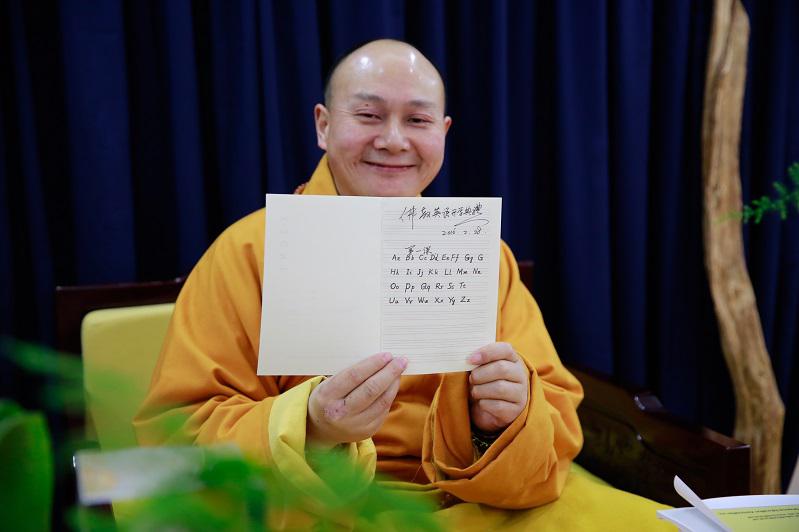 佛教英语开学典礼
2016.2.28
第一课
Aa Bb Cc Dd Ee Ff Gg G
Hh Ii Jj Kk Ll Mm Nn
Oo Pp Qq Rr Ss Tt
Uu Vv Ww Xx Yy Zz